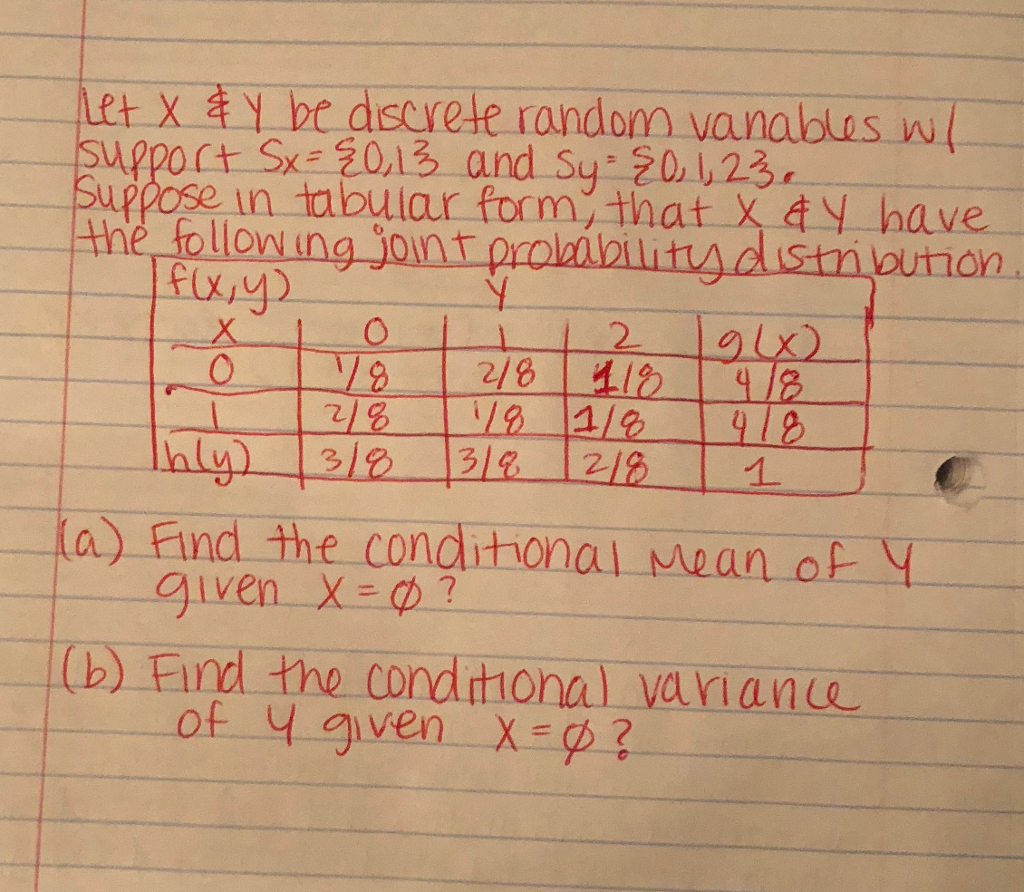 Let X & Y be discrete random variables w/
support Sx = {0,1} and Sy = {0,1,2}.
Suppose in tabular form, that X & Y have
the following joint probability distribution.
f(x,y) Y
X 0 1 2 g(x)
0 1/8 2/8 1/8 4/8
1 2/8 1/8 1/8 4/8
h(y) 3/8 3/8 2/8 1
(a) Find the conditional Mean of Y
given X = ∅ ?
(b) Find the conditional variance
of Y given X = ∅ ?